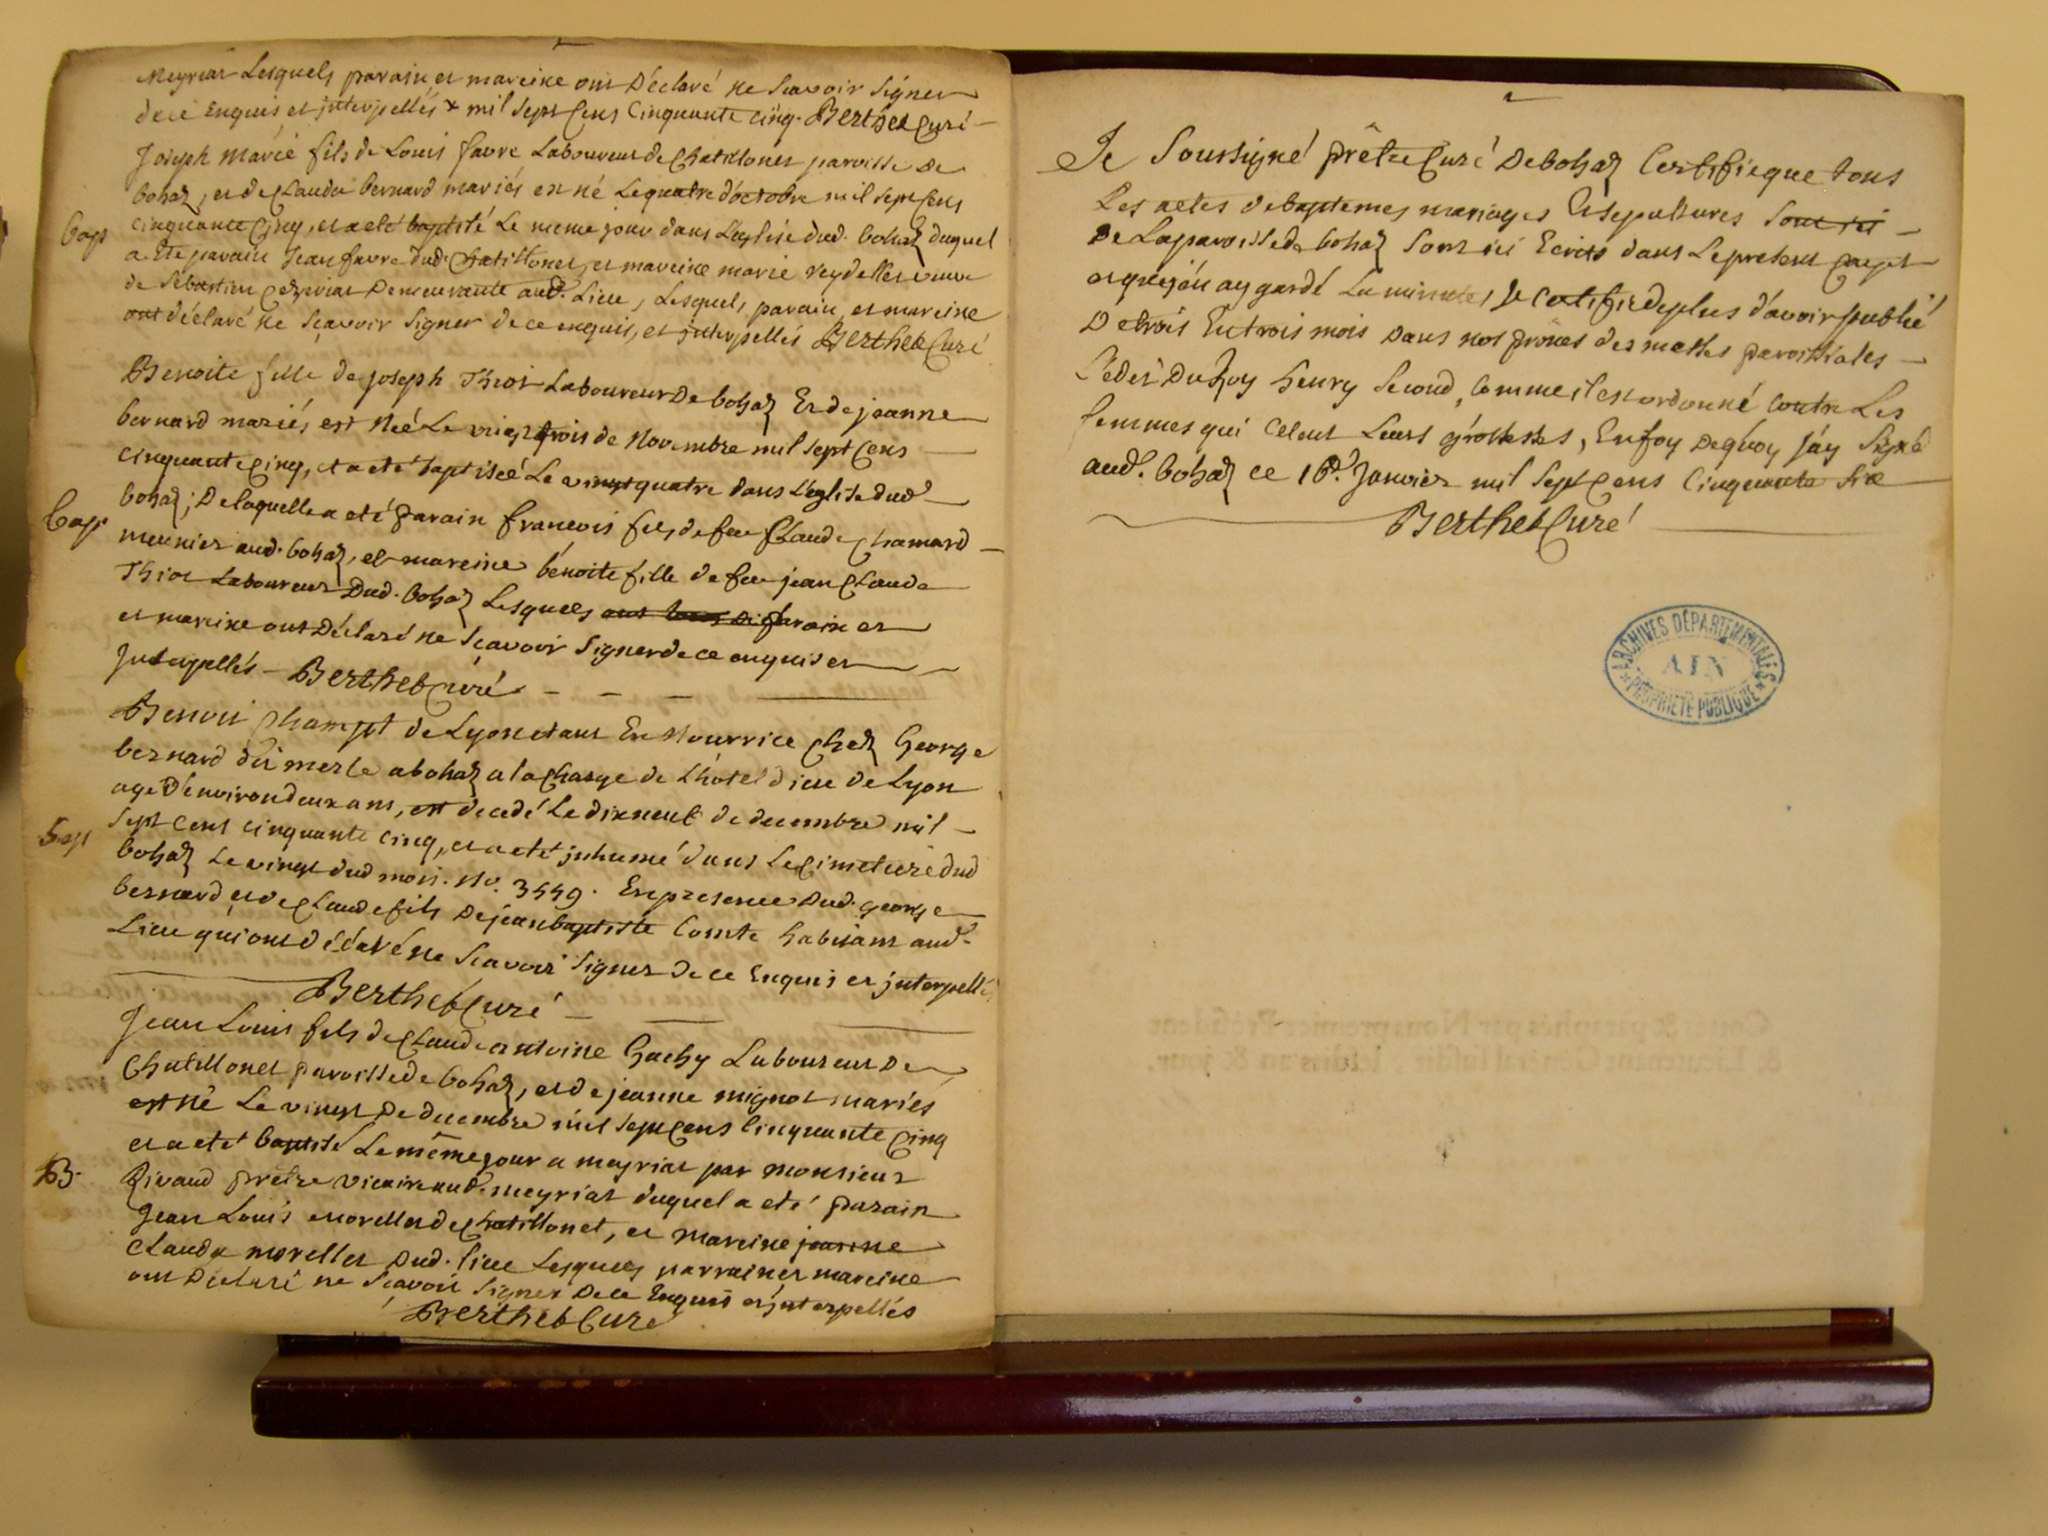 Meyriat Lesquels parain et mareine ont Déclaré ne Scavoir Signer
de ce Enquis et jnterpellés & mil Sept Cens Cinquante cinq. Berthet Curé
Joseph marie fils de Louis favre Laboureur de Chatillonet paroisse de
bohaz, et de Claudu bernard mariés est né Le quatre d'octobre mil sept Cens
bap cinquante Cinq, et a eté baptisé Le meme jour dans L'eglise dud. bohaz duquel
a Eté parain Jean favre dud. Chatillonet, et mareine marie reydellet veuve
de Sébastien demeurante aud. Lieu, Lesquels parain et mareine
ont déclaré ne Scavoir Signer de ce enquis, et jnterpellés Berthet Curé
Benoite fille de joseph Thiot Laboureur De bohaz Et de jeanne
bernard mariés est Née Le vingt trois de Novembre mil Sept Cens
cinquante Cinq, et a eté baptiseé Le vingt quatre dans L'eglise dud.
Bap bohaz; De laquelle a eté parain francois fils de feu Claude Chamard
meunier aud. bohaz, et mareine bénoite fille de feu jean Claude
Thiot Laboureur Dud. bohaz Lesquels parain et
et mareine ont Déclaré ne Sçavoir Signer de ce enquis et
jnterpellés - Berthet Curé
Benoit Champt de Lyon etant En Nourrice Chez George
bernard dit merle a bohaz a la Charge de L'hotel dieu de Lyon
agé d'environ deux ans, est decedé Le dixneuf de decembre mil
Sep sept cens cinquante cinq, et a eté jnhumé dans Le Cimetiere dud
bohaz Le vingt dud mois. No. 3559. En presence Dud. george
bernard et de Claude fils De jean baptiste Comte habitans aud.
Lieu qui ont déclaré ne Scavoir Signer de ce Enquis et jnterpellé
Berthet Curé
Jean Louis fils de Claude antoine Gachy Laboureur De
Chatillonet paroisse de bohaz, et de jeanne mignot mariés
est né Le vingt De decembre mil Sept Cens Cinquante Cinq
et a eté baptisé Le même jour a meyriat par monsieur
B. Rivaud prêtre vicaire aud. meyriat duquel a eté parain
Jean Louis morellet de Chatillonet, et mareine jeanne
Clauda morellet Dud. lieu Lesquels parrain et mareine
ont Déclaré ne Scavoir Signer De ce Enquis et jnterpellés
Berthet Curé
Je Soussigné prêtre Curé De bohaz Certifie que tous
Les actes de baptemes mariages Et sepultures Sont ici
De La paroisse de bohaz Sont ici Ecrits dans Le present
et que j'en ay gardé La minute, Je Certifie de plus d'avoir publié
De trois En trois mois Dans nos prônes des messes paroissiales
l'edit Du Roy henry Second, Comme il est ordonné contre Les
femmes qui celent Leurs grossesses, En foy De quoy j'ay Signé
aud. bohaz ce 16e. Janvier mil Sept Cens Cinquante Six
Berthet Curé
ARCHIVES DÉPARTEMENTALES
AIN
PROPRIÉTÉ PUBLIQUE